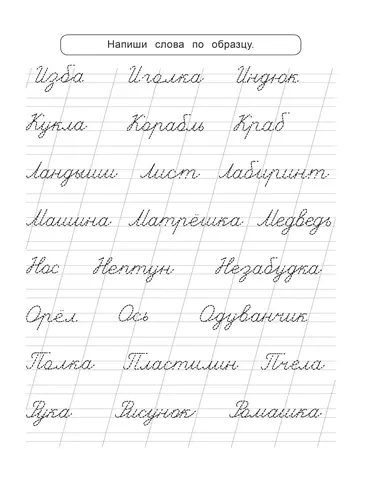 Напиши слова по образцу.
Изба Иголка Индюк
Кукла Корабль Краб
Ландыши Лист Лабиринт
Машина Матрёшка Медведь
Нос Нептун Незабудка
Орёл Ось Одуванчик
Полка Пластилин Пчела
Рука Рисунок Ромашка